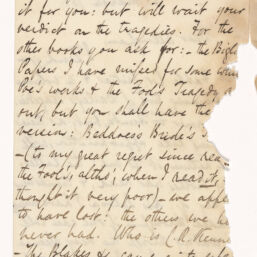 it for you: but will wait your
verdict on the tragedies. For the
other books you ask for:- the
Papers I have missed for some
Poe's works & the Fool's Tragedy
out, but you shall have the
Beddoes's Bride's
-(to my great regret since
the Fool's, altho', when I read it,
thought it very poor) - we
to have lost: the others we
never had. Who is C. R.
- The Blakes &